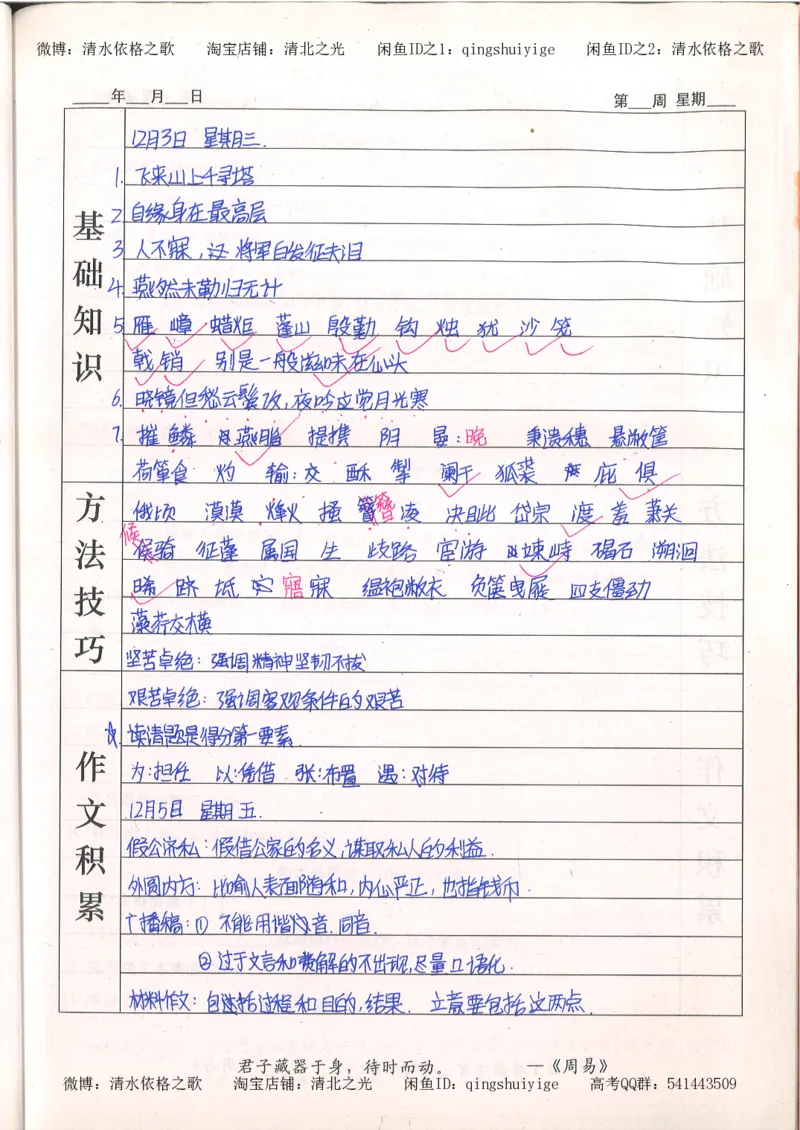 微博：清水依格之歌 淘宝店铺：清北之光 闲鱼ID之1：qingshuiyige 闲鱼ID之2：清水依格之歌
年 月 日 第 周 星期
基础知识
12月3日 星期三.
1. 飞来山上千寻塔
2. 自缘身在最高层
3. 人不寐, 将军白发征夫泪
4. 燕然未勒归无计
5. 雁 嶂 蜡炬 蓬山 殷勤 钩 烛 犹 沙 笼
戟 销 别是一般滋味在心头
6. 晓镜但愁云鬓改,夜吟应觉月光寒
7. 摧 鳞 燕脂 提携 阴 晏:晚 秉遗穗 悬敝筐
荷箪食 灼 输:交 酥 掣 阑干 狐裘 庇 俱
方法技巧
俄顷 漠漠 烽火 搔 簪 凑 决眦 岱宗 渡 羞 萧关
候骑 征蓬 属国 生 歧路 宦游 竦峙 碣石 溯洄
晞 跻 坻 寤寐 缊袍敝衣 负箧曳屣 四支僵劲
藻荇交横
坚苦卓绝: 强调精神坚韧不拔
作文积累
艰苦卓绝: 强调客观条件的艰苦
☆. 读清题是得分第一要素.
为:担任 以:凭借 张:布置 遇:对待
12月5日 星期五.
假公济私:假借公家的名义,谋取私人的利益.
外圆内方: 比喻人表面随和,内心严正,也指钱币.
广播稿:① 不能用谐音.同音.
② 过于文言和费解的不出现,尽量口语化.
材料作文: 包括过程和目的,结果. 立意要包括这两点.
君子藏器于身，待时而动。 ——《周易》
微博：清水依格之歌 淘宝店铺：清北之光 闲鱼ID：qingshuiyige 高考QQ群：541443509